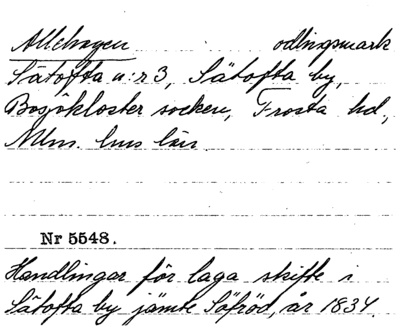 Allehagen odlingsmark
Sätofta n:r 3, Sätofta by,
Bosjökloster socken, Frosta hd,
Mlm. hus län.
Nr 5548.
Handlingar för laga skifte i
Sätofta by jämte Säfröd, år 1834.